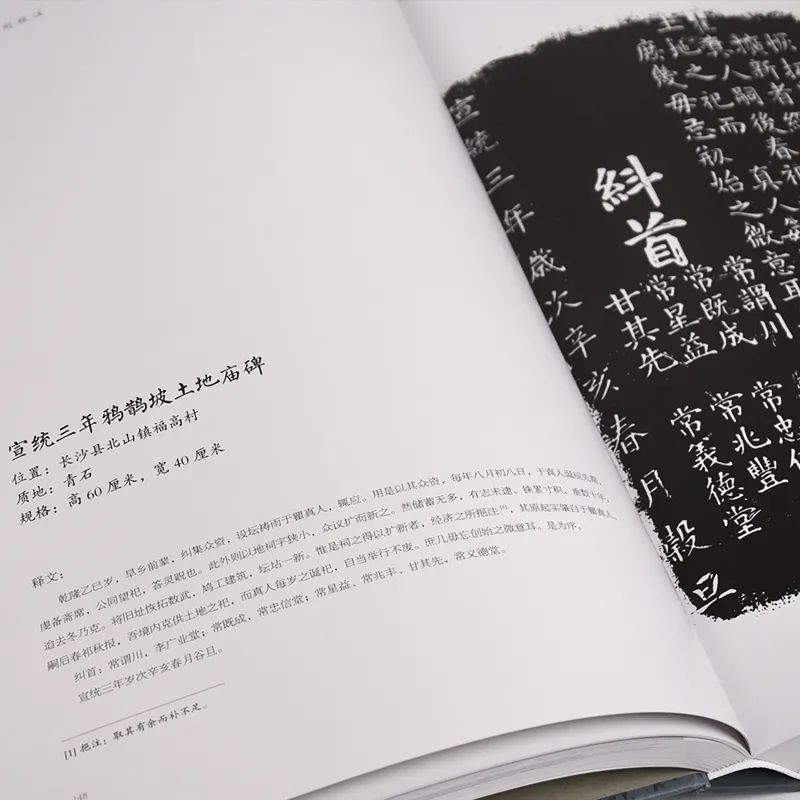 宣统三年鸦鹊坡土地庙碑
位置：长沙县北山镇福高村
质地：青石
规格：高 60 厘米，宽 40 厘米
释文：
乾隆乙巳岁，旱乡前辈，纠集众资，设坛祷雨于瞿真人，辄应。用是以其众资，每年八月初八日，于真人诞辰先期，
虔备斋席，公同望祀，答灵贶也。此外则以地祠宇狭小，众议扩而新之。然储蓄无多，有志未逮。铢累寸积，垂数十年，
迨去冬乃克。将旧址恢拓数武，鸠工建筑，坛坫一新。惟是祠之得以扩新者，经济之所挹注[1]，其原起实肇自于瞿真人。
嗣后春祁秋报，吾境内克供土地之祀，而真人每岁之诞祀，自当举行不废。庶几毋忘创始之微意耳。是为序。
纠首：常谓川，李广业堂；常既成，常忠信堂；常星益、常兆丰、甘其先，常义德堂。
宣统三年岁次辛亥春月谷旦。
[1] 挹注：取其有余而补不足。
148
嗣後春祁
真人每
人祀而
地之
庶幾毋忘刱始之微意耳
糾首
常謂川
常既成
常星益
甘其先
常忠
常兆豐
常義德堂
宣統三年歲次辛亥春月穀旦